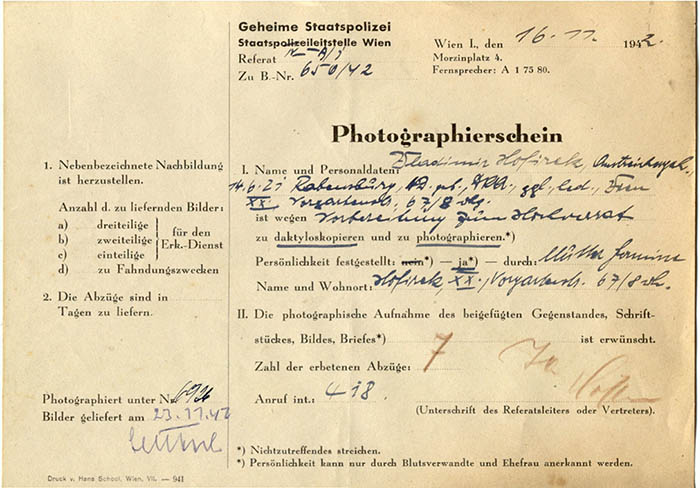 Geheime Staatspolizei
Staatspolizeileitstelle Wien
Referat
Zu B.-Nr. 650/42
Wien I., den 16. 11. 1942.
Morzinplatz 4.
Fernsprecher: A 1 75 80.
Photographierschein
1. Nebenbezeichnete Nachbildung
ist herzustellen.
Anzahl d. zu liefernden Bilder:
a) dreiteilige
b) zweiteilige
c) einteilige
für den
Erk.-Dienst
d) zu Fahndungszwecken
2. Die Abzüge sind in
Tagen zu liefern.
Photographiert unter Nr.
Bilder geliefert am 23.11.42
I. Name und Personaldaten: Wladimir Hofirek,
14.6.21 Rabensburg, led., Wien
XX. Vorgartenstr. 67/8 whg.
ist wegen Vorbereitung zum Hochverrat
zu daktyloskopieren und zu photographieren.*)
Persönlichkeit festgestellt: nein*) — ja*) — durch: Mutter
Name und Wohnort: Hofirek, XX., Vorgartenstr. 67/8 whg.
II. Die photographische Aufnahme des beigefügten Gegenstandes, Schrift-
stückes, Bildes, Briefes*) ist erwünscht.
Zahl der erbetenen Abzüge: 7
Anruf int.: 418
(Unterschrift des Referatsleiters oder Vertreters).
*) Nichtzutreffendes streichen.
*) Persönlichkeit kann nur durch Blutsverwandte und Ehefrau anerkannt werden.
Druck v. Hans School, Wien, VII. — 941